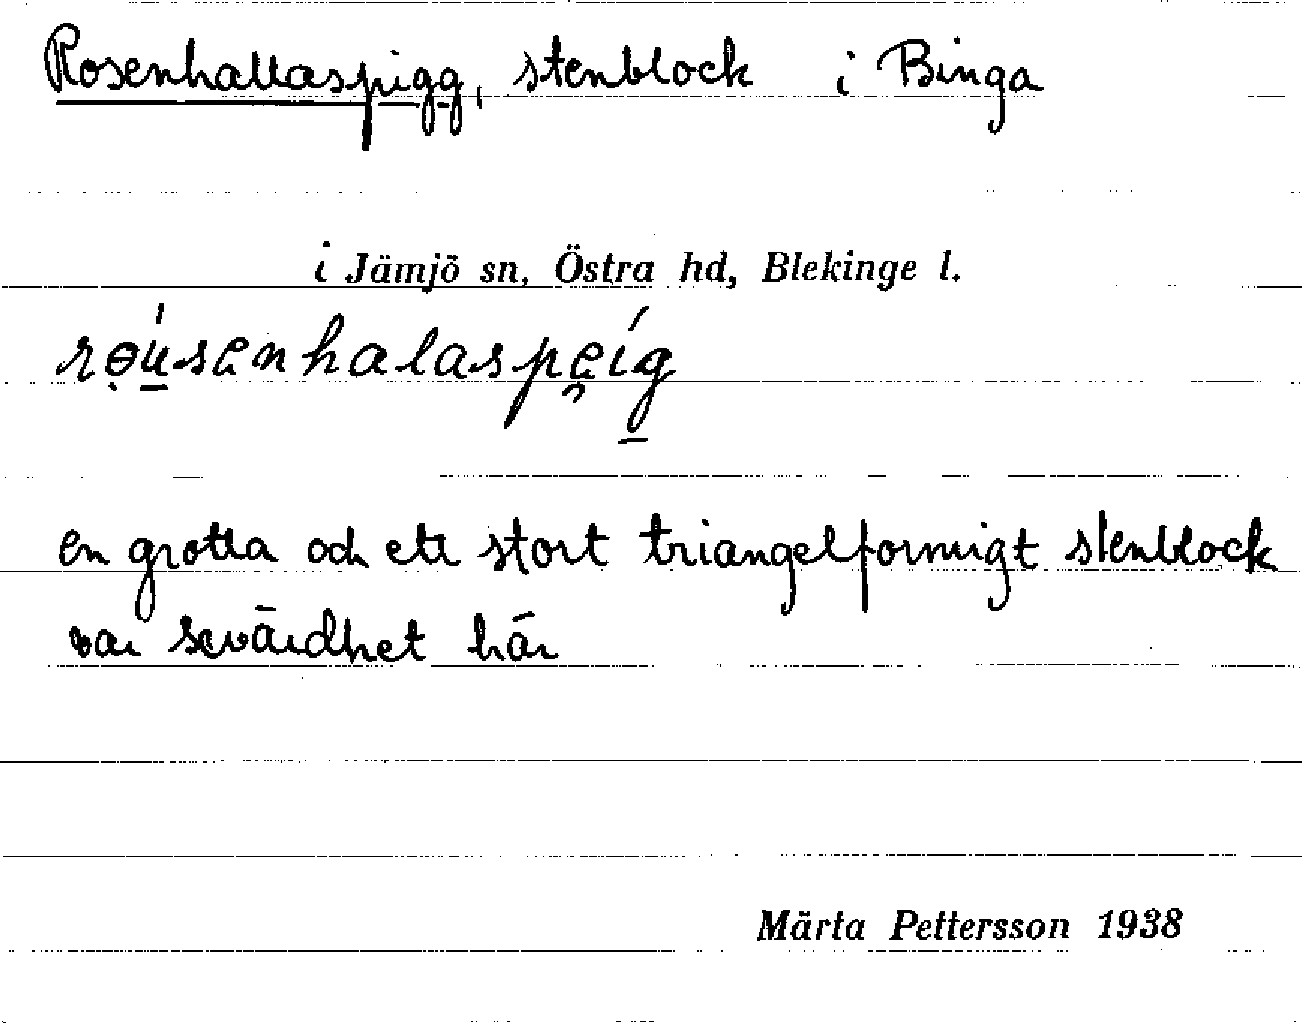 Rosenhallaspigg, stenblock i Binga
i Jämjö sn, Östra hd, Blekinge l.
rọu̲̍senhalaspe̯íg̲
en grotta och ett stort triangelformigt stenblock
var sevärdhet här
Märta Pettersson 1938